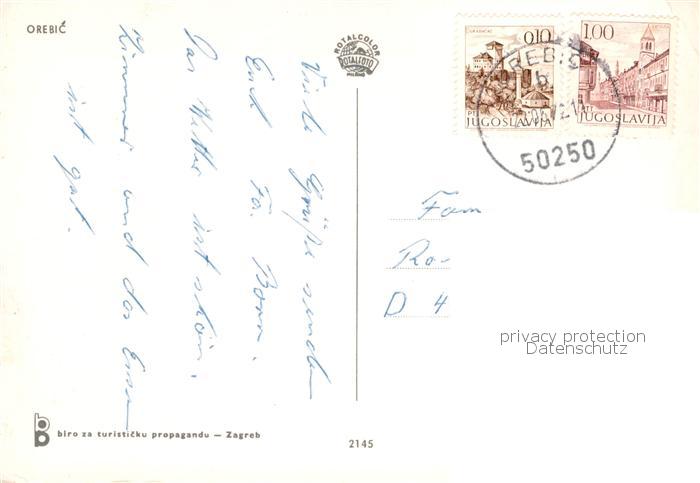 OREBIĆ
ROTALCOLOR
ROTALFOTO
Viele Grüße senden
Euch Fa. Born.
Das Wetter ist schön.
Zimmer und das Essen
ist gut.
GRADAČAC
0,10
PTT
JUGOSLAVIJA
1.00
PTT
JUGOSLAVIJA
OREBIĆ
b
50250
Fam
Ro-
D 4
privacy protection
Datenschutz
biro za turističku propagandu — Zagreb
2145